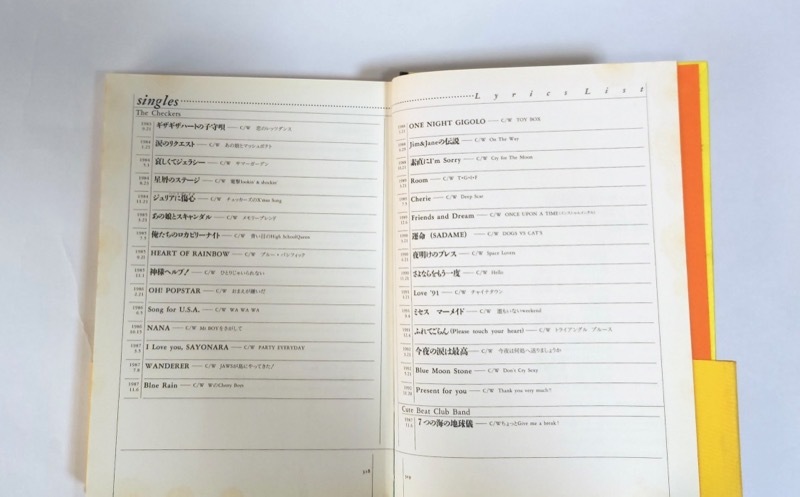 singles
The Checkers
1983 9.21 ギザギザハートの子守唄 — C/W 恋のレッツダンス
1984 1.21 涙のリクエスト — C/W あの娘とマッシュポテト
1984 5.1 哀しくてジェラシー — C/W サマーガーデン
1984 8.23 星屑のステージ — C/W
1984 11.21 ジュリアに傷心 — C/W チェッカーズのX'mas Song
1985 あの娘とスキャンダル — C/W メモリーブレンド
1985 7.5 俺たちのロカビリーナイト — C/W 青い目のHigh SchoolQueen
1985 HEART OF RAINBOW — C/W ブルー・パシフィック
1985 11.1 神様ヘルプ! — C/W ひとりじゃいられない
1986 2.21 OH! POPSTAR — C/W おまえが嫌いだ
1986 6.5 Song for U.S.A. — C/W WA WA WA
1986 10.15 NANA — C/W Mr.BOYをさがして
1987 3.5 I Love you, SAYONARA — C/W PARTY EVERYDAY
1987 7.8 WANDERER — C/W JAWSが街にやってきた!
1987 11.6 Blue Rain — C/W WのCherry Boys
318
Lyrics List
ONE NIGHT GIGOLO — C/W TOY BOX
Jim&Janeの伝説 — C/W On The Way
素直にI'm Sorry — C/W Cry for The Moon
Room — C/W T・G・I・F
Cherie — C/W Deep Sox
Friends and Dream — C/W ONCE UPON A TIME(インストゥルメンタル)
運命 (SADAME) — C/W DOGS VS CAT'S
夜明けのブレス — C/W Space Lovers
さよならをもう一度 — C/W Hello
Love '91 — C/W チャイナタウン
ミセス マーメイド — C/W 誰もいないweekend
ふれてごらん (Please touch your heart) — C/W トライアングル ブルース
今夜の涙は最高 — C/W 今夜は何処へ送りましょうか
Blue Moon Stone — C/W Don't Cry Sexy
Present for you — C/W Thank you very much!!
Cute Beat Club Band
1987 7つの海の地球儀 — C/W ちょっとGive me a break!
319